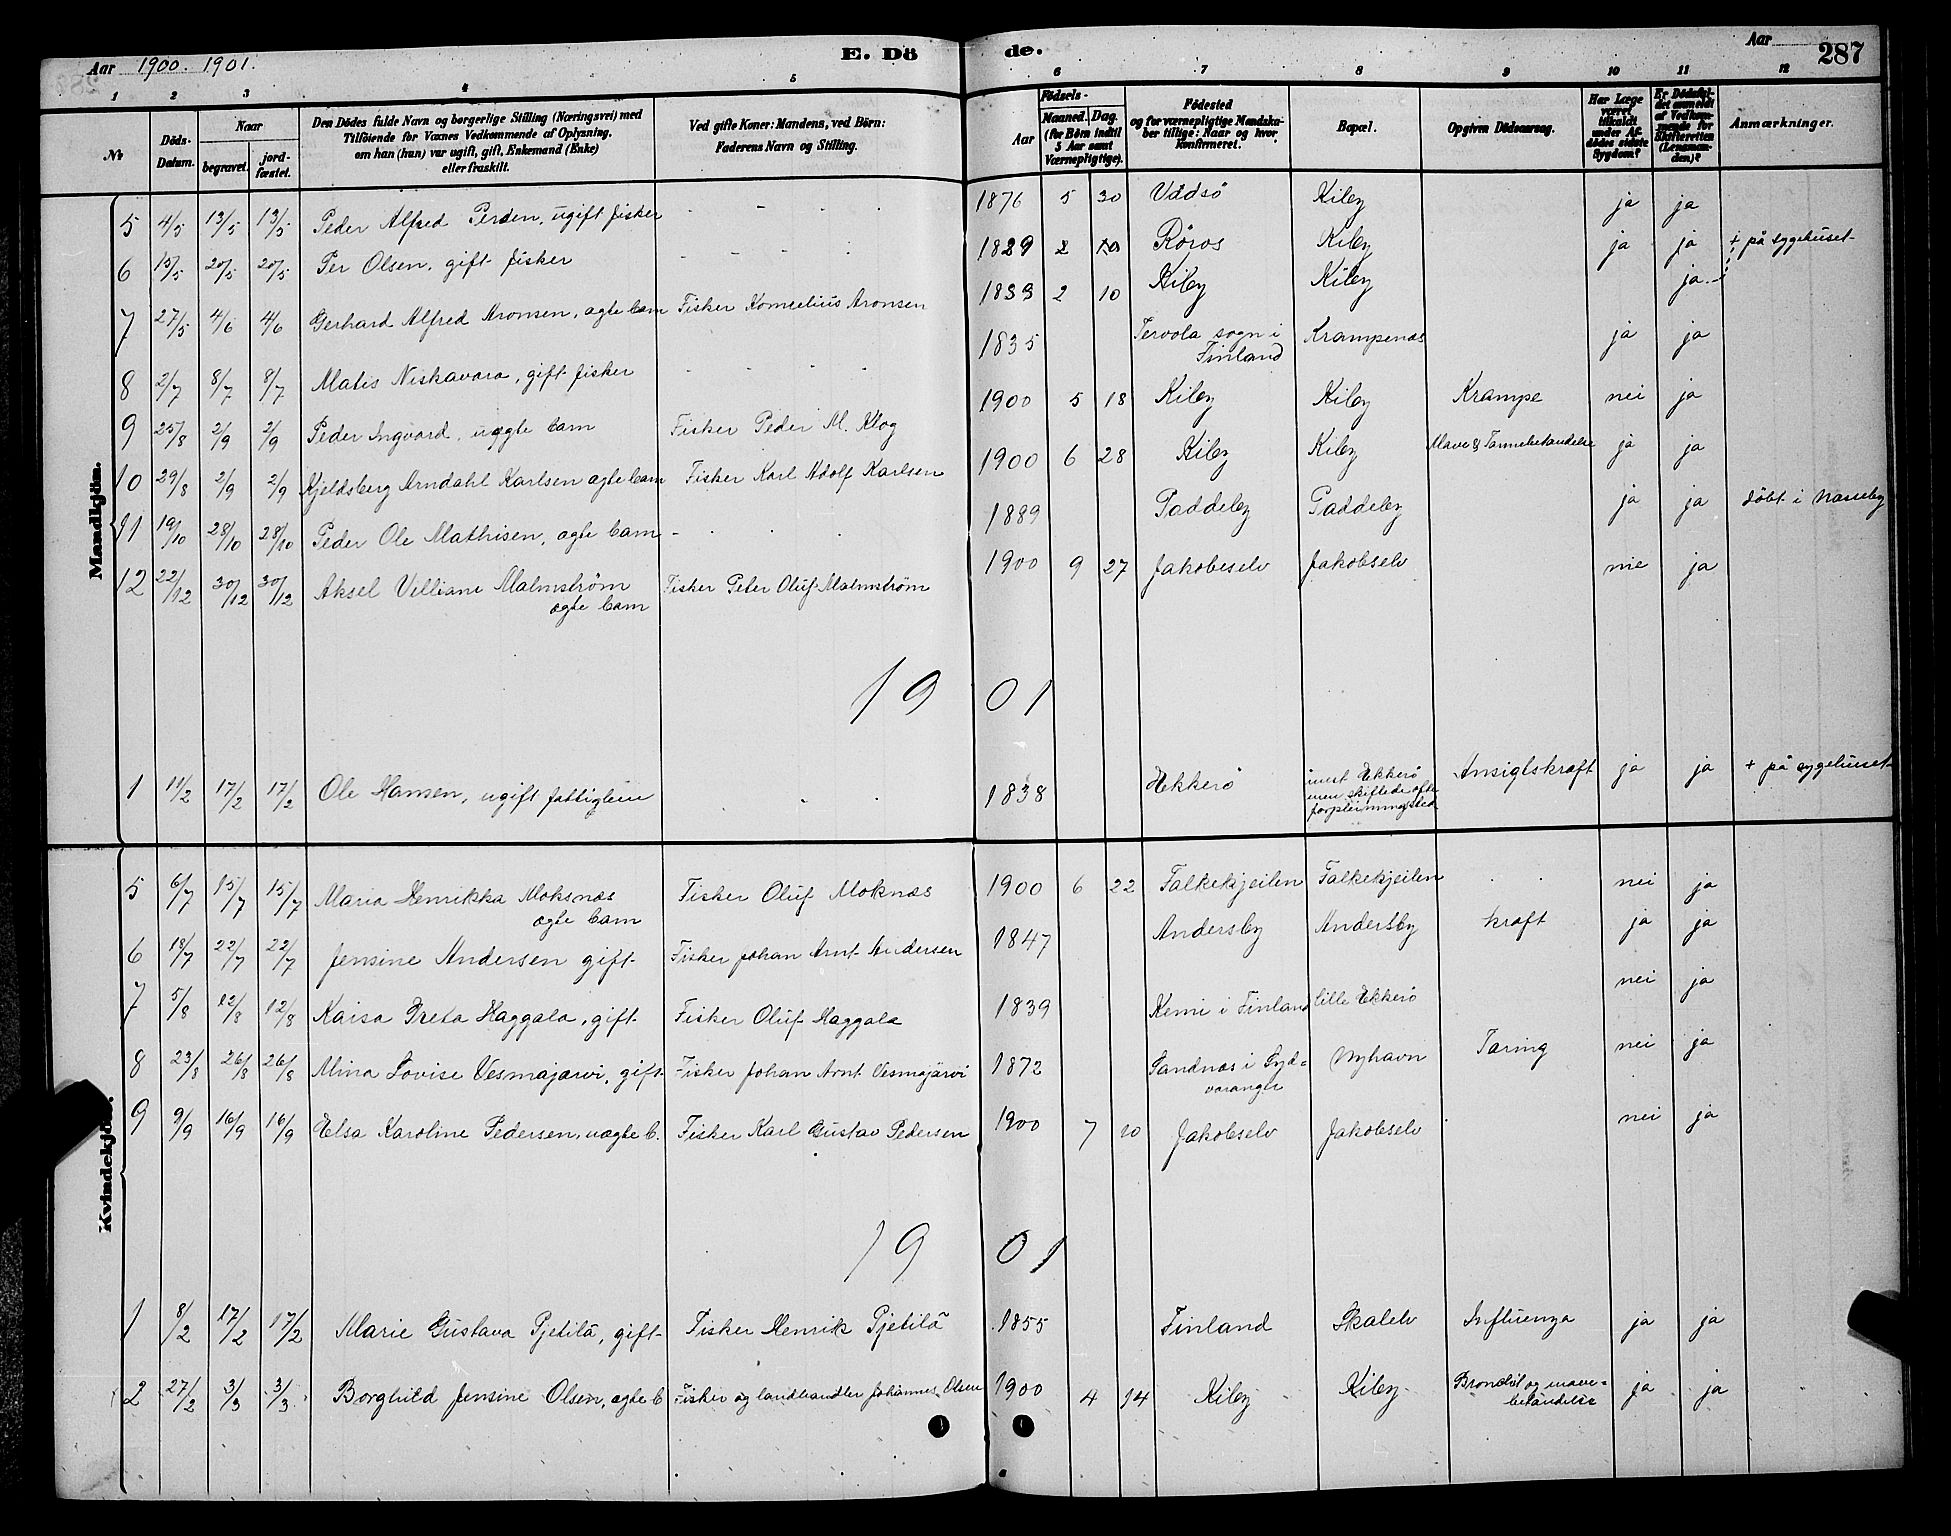 Aar 1900. 1901.
E. Dö
de.
Aar
287
1 2 3 4 5 6 7 8 9 10 11 12
No
Döds-Datum.
Naar
begravet.
jord-fæstet.
Den Dödes fulde Navn og borgerlige Stilling (Næringsvei) med
Tilföiende for Voxnes Vedkommende af Oplysning,
om han (hun) var ugift, gift, Enkemand (Enke)
eller fraskilt.
Ved gifte Koner: Mandens, ved Börn:
Faderens Navn og Stilling.
Födsels-
Aar
Maaned. Dag.
(for Börn indtil
5 Aar samt
Værnepligtige).
Födested
og for værnepligtige Mandska-
ber tillige: Naar og hvor
konfirmeret.
Bopæl.
Opgiven Dödsaarsag.
Har Læge
været
tilkaldt
under Af-
dödes sidste
Sygdom?
Er Dödsfal-
det anmeldt
af Vedkom-
mende for
Skifteretten
(Lensman-
den)?
Anmærkninger.
Mandkjön.
5 4/5 13/5 13/5 Peder Alfred Persen, ugift fisker - - - - 1876 5 30 Vadsö Kiby ja ja
6 15/5 20/5 20/5 Per Olsen, gift fisker - - - - 1829 2 Röros Kiby ja ja + på sygehuset
7 27/5 4/6 4/6 Gerhard Alfred Aronsen, ægte barn Fisker Kornelius Aronsen 2 10 Kiby Kiby ja
8 2/7 8/7 8/7 Matis Niskavara, gift fisker - - - - 1835 Tervola sogn i Krampenæs ja ja
Finland
9 25/8 2/9 2/9 Peder Ingvard, uægte barn Fisker Peder M. Klog 1900 5 18 Kiby Kiby Krampe nei ja
10 29/8 2/9 2/9 Kjeldsberg Arndahl Karlsen ægte barn Fisker Karl Adolf Karlsen 1900 6 28 Kiby Kiby Mave & ja ja
11 19/10 28/10 28/10 Peder Ole Mathisen, ægte barn - - - 1889 Paddeby Paddeby ja ja döbt i Næsseby
12 22/12 30/12 30/12 Aksel Villiam Malmström Fisker Peter Oluf Malmström 1900 9 27 Jakobselv Jakobselv nie ja
ægte barn
19 01
1 11/2 17/2 17/2 Ole Hansen, ugift fattiglem - - 1838 Ekkerö Ekkerö Ansigtskræft ja ja + på sygehuset
men skiftede ofte
forpleiningssted
Kvindekjön.
5 6/7 15/7 15/7 Maria Henrikka Moksnæs Fisker Oluf Moknæs 1900 6 22 Falkekjeilen Falkekjeilen - - nei ja
ægte barn
6 18/7 22/7 22/7 Jensine Andersen gift Fisker Johan Arnt Andersen 1847 Andersby Andersby kræft ja ja
7 5/8 12/8 12/8 Kaisa Greta Haggala, gift Fisker Oluf Haggala 1839 Kemi i Finland Lille Ekkerö nei ja
8 23/8 26/8 26/8 Mina Lovise Vesmajarvi, gift Fisker Johan Arnt Vesmajärvi 1872 Sandnæs i Syd= Nyhavn Tæring nei ja
varanger
9 9/9 16/9 16/9 Elsa Karoline Pedersen, uægte b. Fisker Karl Gustav Pedersen 1900 7 10 Jakobselv Jakobselv nei ja
19 01
1 8/2 17/2 17/2 Marie Gustava Pjetilä, gift Fisker Henrik Pjetilä 1855 Finland Skalelv Influenza ja ja
2 27/2 3/3 3/3 Borghild Jensine Olsen, ægte b Fisker og landhandler Johannes Olsen 1900 4 14 Kiby Kiby og mave= ja ja